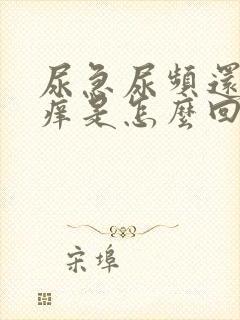 尿急尿頻還
痒是怎麼回
宋埠